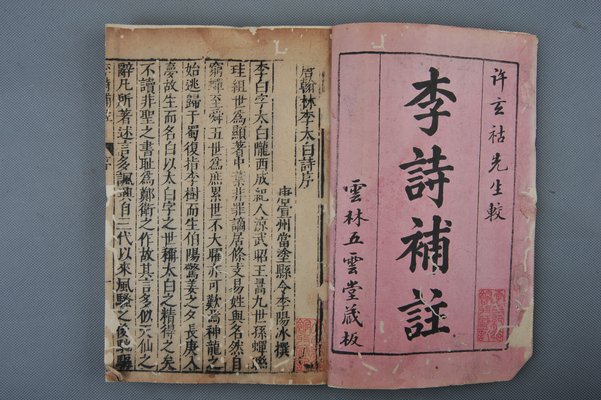 許玄祜先生較
李詩補註
雲林五雲堂藏板
唐翰林李太白詩序
唐宣州當塗縣令李陽冰撰
李白字太白隴西成紀人涼武昭王暠九世孫蟬聯
珪組世為顯著中葉非罪謫居條支易姓與名然自
窮蟬至舜五世為庶累世不大曜亦可歎焉神龍之
始逃歸于蜀復指李樹而生伯陽驚姜之夕長庚入
夢故生而名白以太白字之世稱太白之精得之矣
不讀非聖之書恥為鄭衛之作故其言多似天仙之
辭凡所著述言多諷興自三代以來風騷之後馳驅